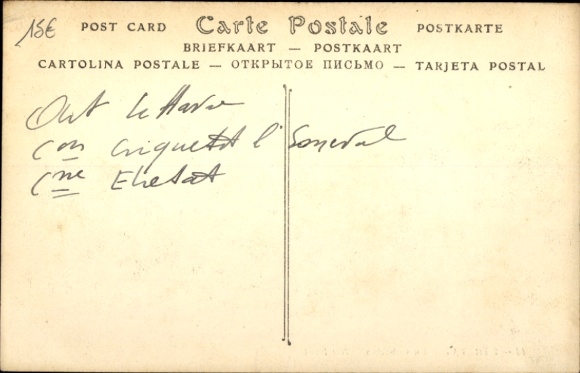 15€
POST CARD Carte Postale POSTKARTE
BRIEFKAART — POSTKAART
CARTOLINA POSTALE — ОТКРЫТОЕ ПИСЬМО — TARJETA POSTAL
Le Havre
Con Criquetot l'Esneval
Cne Etretat